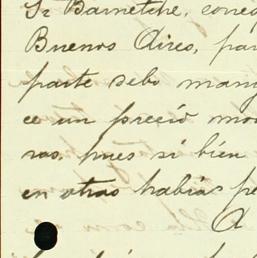 Sr Barnetche, correg
Buenos Aires, par
parte debo man
ce un precio mo
ras, pues si bien
en otras habías pe
A